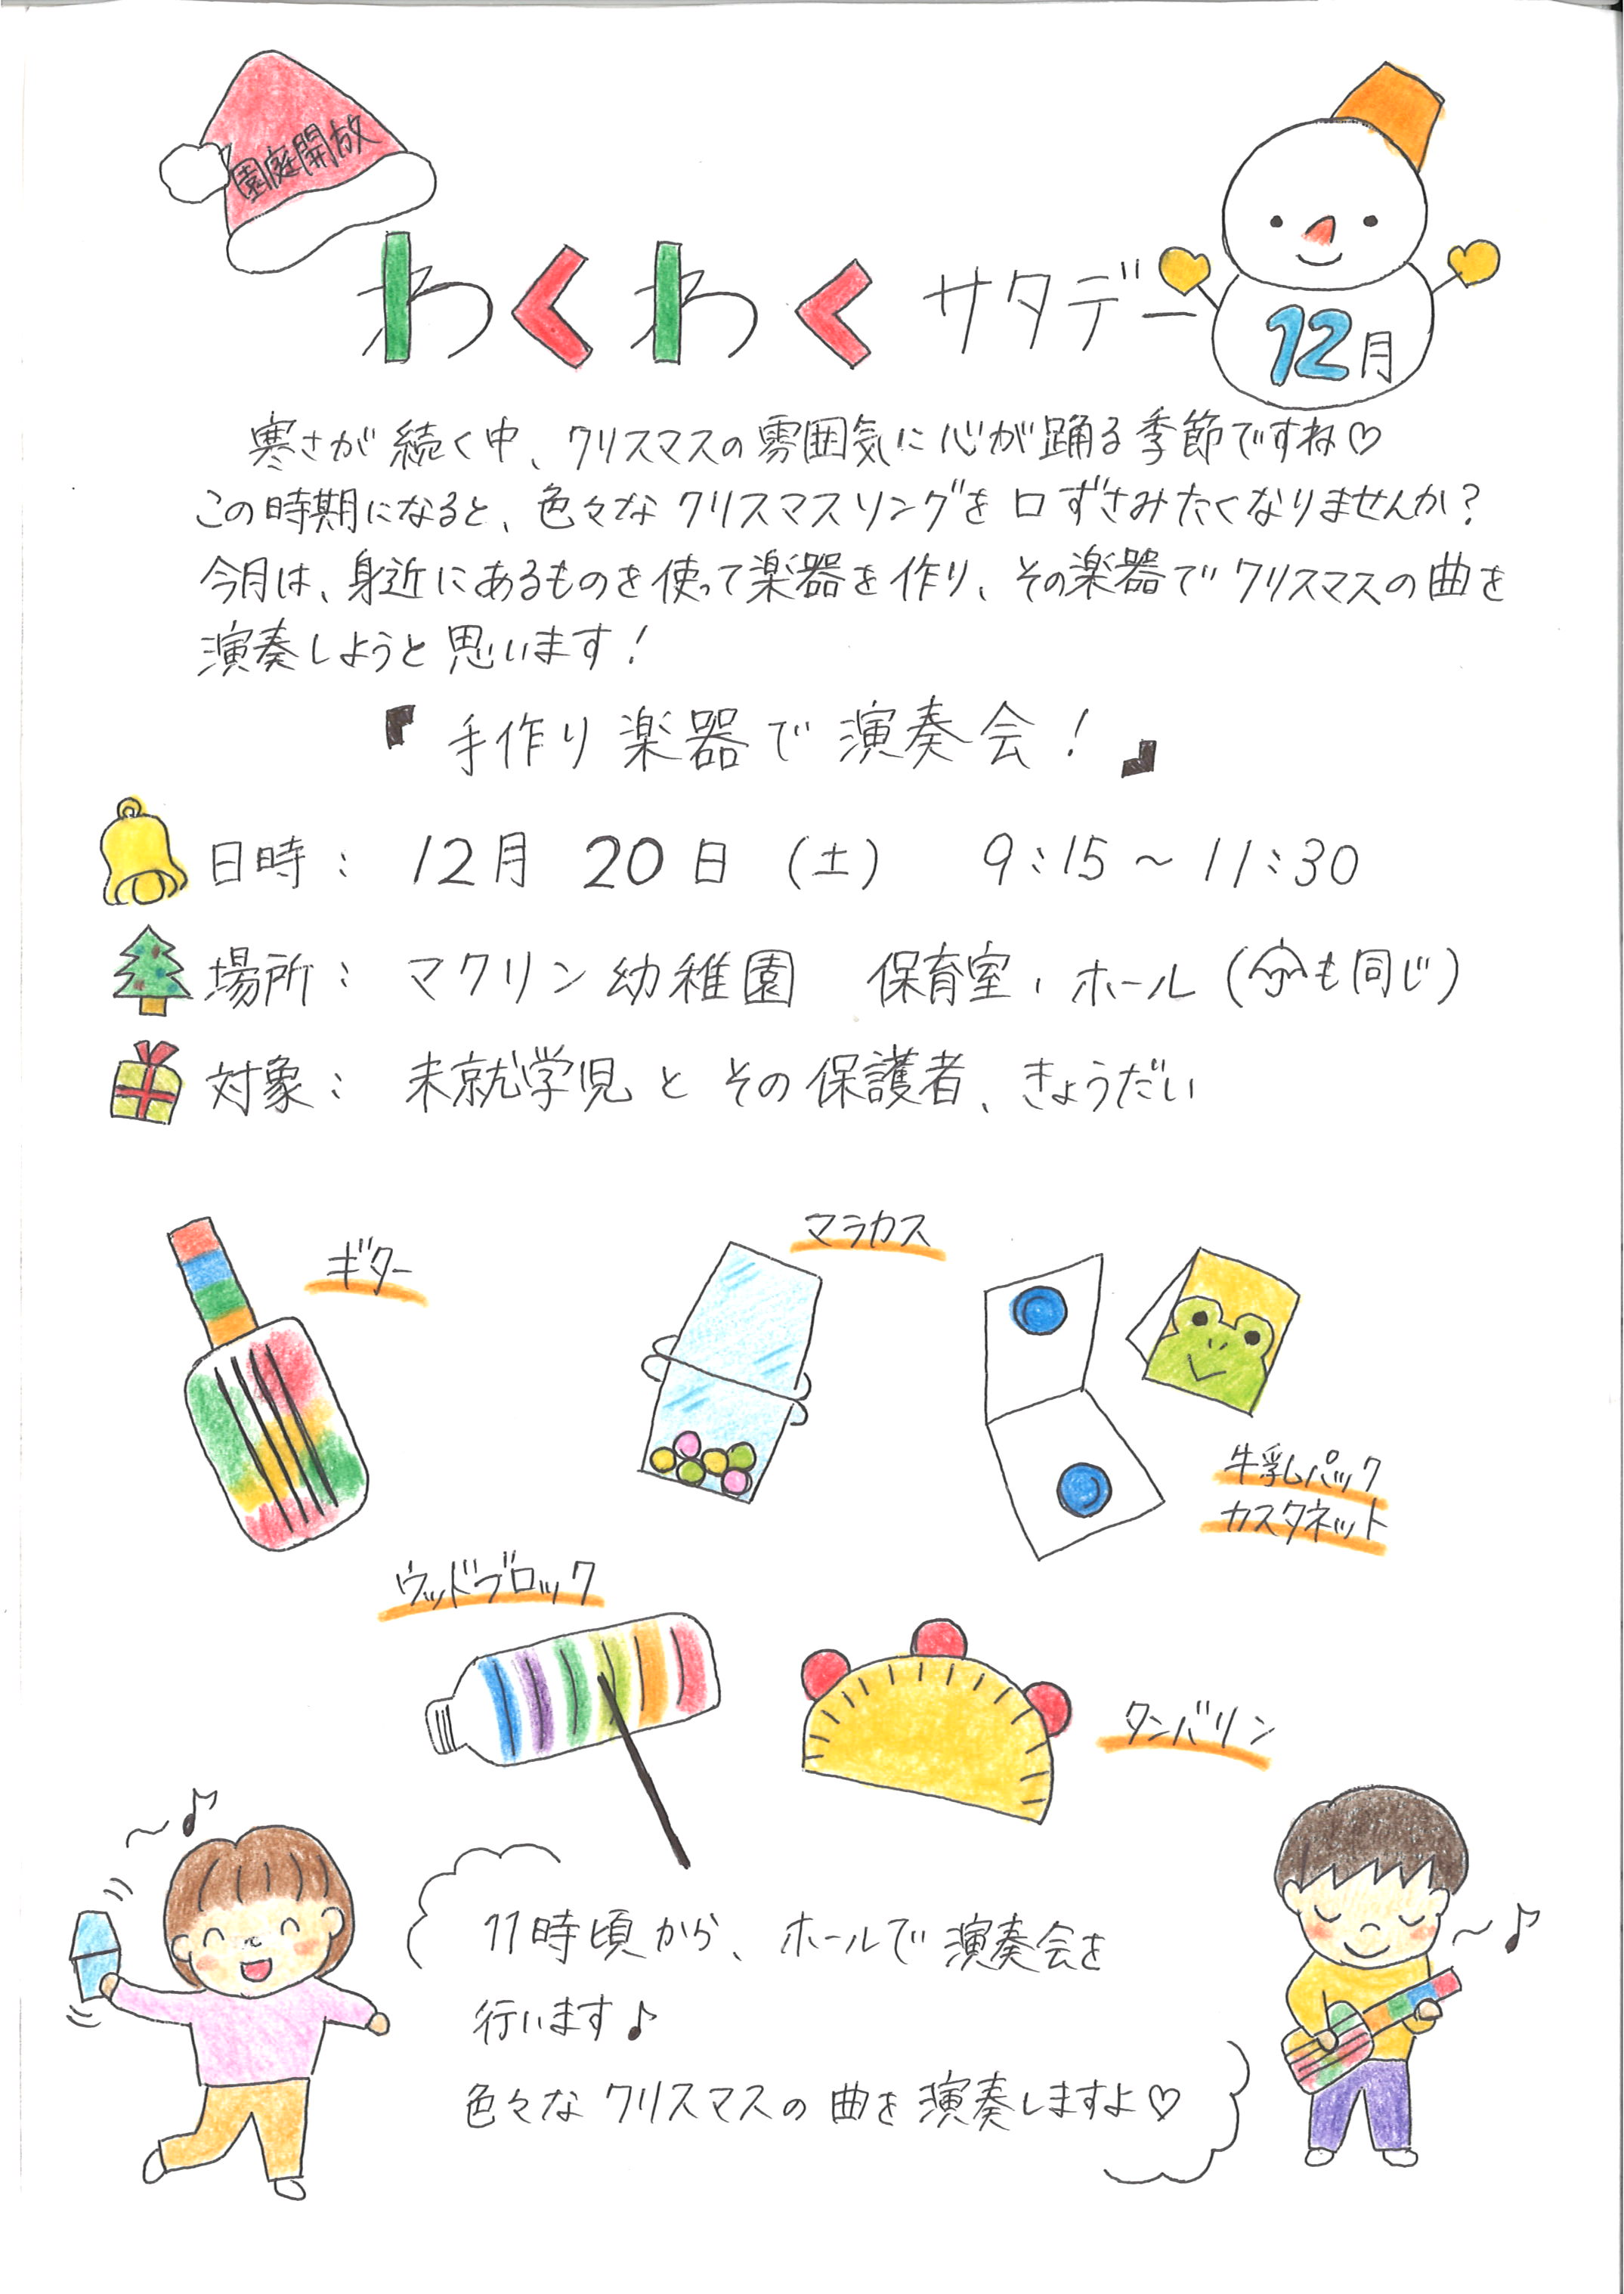 園庭開放
わくわくサタデー
12月
寒さが続く中、クリスマスの雰囲気に心が踊る季節ですね♡
この時期になると、色々なクリスマスソングを口ずさみたくなりませんか?
今月は、身近にあるものを使って楽器を作り、その楽器でクリスマスの曲を
演奏しようと思います!
『手作り楽器で演奏会!』
日時: 12月 20日 (土) 9:15~11:30
場所: マクリン幼稚園 保育室、ホール (☂も同じ)
対象: 未就学児とその保護者、きょうだい
ギター
マラカス
牛乳パック
カスタネット
ウッドブロック
タンバリン
11時頃から、ホールで演奏会を
行います♪
色々なクリスマスの曲を演奏しますよ♡